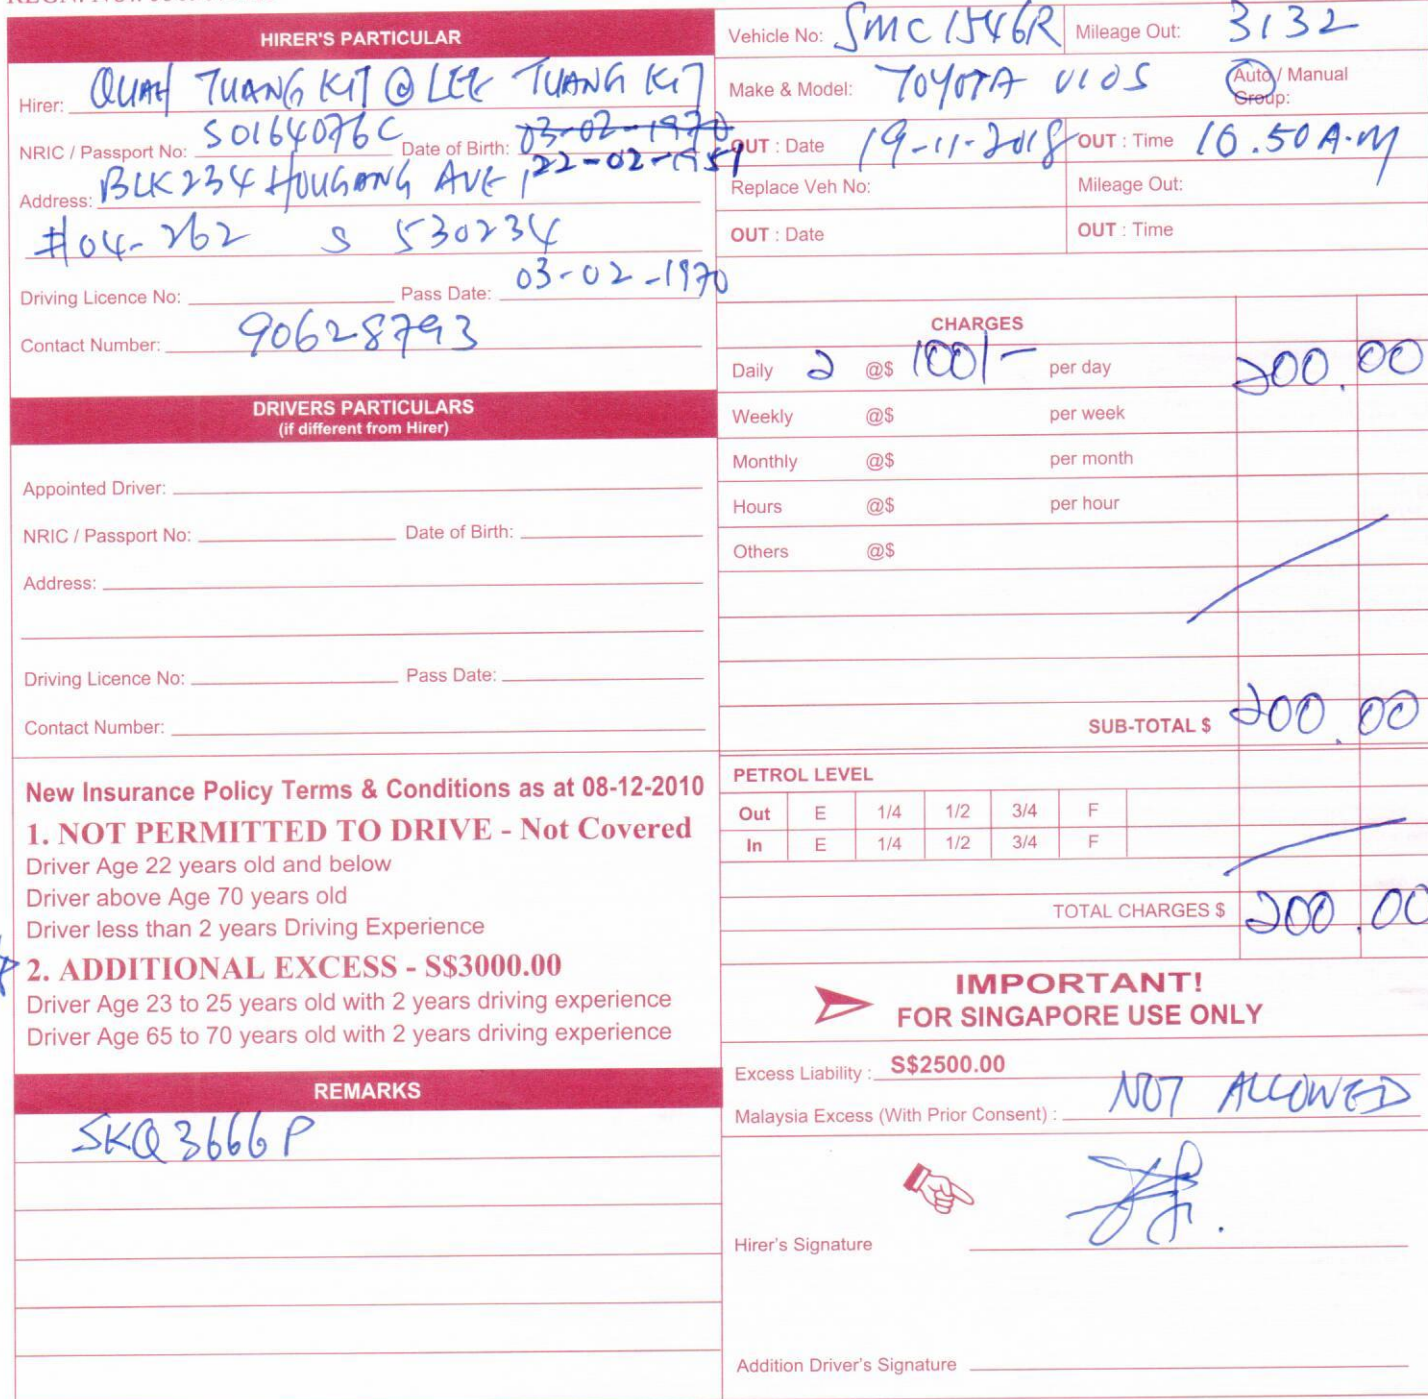 HIRER'S PARTICULAR
Hirer: QUAH TUANG KIT @ LEE TUANG KIT
NRIC / Passport No: S0164076C Date of Birth: 03-02-1970
22-02-1951
Address: BLK 234 HOUGANG AVE 1
#04-262 S 530234
Driving Licence No: Pass Date: 03-02-1970
Contact Number: 90628793
DRIVERS PARTICULARS
(if different from Hirer)
Appointed Driver:
NRIC / Passport No: Date of Birth:
Address:
Driving Licence No: Pass Date:
Contact Number:
New Insurance Policy Terms & Conditions as at 08-12-2010
1. NOT PERMITTED TO DRIVE - Not Covered
Driver Age 22 years old and below
Driver above Age 70 years old
Driver less than 2 years Driving Experience
2. ADDITIONAL EXCESS - S$3000.00
Driver Age 23 to 25 years old with 2 years driving experience
Driver Age 65 to 70 years old with 2 years driving experience
REMARKS
SKQ 3666 P
Vehicle No: SMC 1546R Mileage Out: 3132
Make & Model: TOYOTA VIOS Auto / Manual
Group:
OUT : Date 19-11-2018 OUT : Time 10.50 A.M
Replace Veh No: Mileage Out:
OUT : Date OUT : Time
CHARGES
Daily 2 @$ 100/- per day 200.00
Weekly @$ per week
Monthly @$ per month
Hours @$ per hour
Others @$
SUB-TOTAL $ 200.00
PETROL LEVEL
Out E 1/4 1/2 3/4 F
In E 1/4 1/2 3/4 F
TOTAL CHARGES $ 200.00
IMPORTANT!
FOR SINGAPORE USE ONLY
Excess Liability : S$2500.00
Malaysia Excess (With Prior Consent) : NOT ALLOWED
Hirer's Signature
Addition Driver's Signature